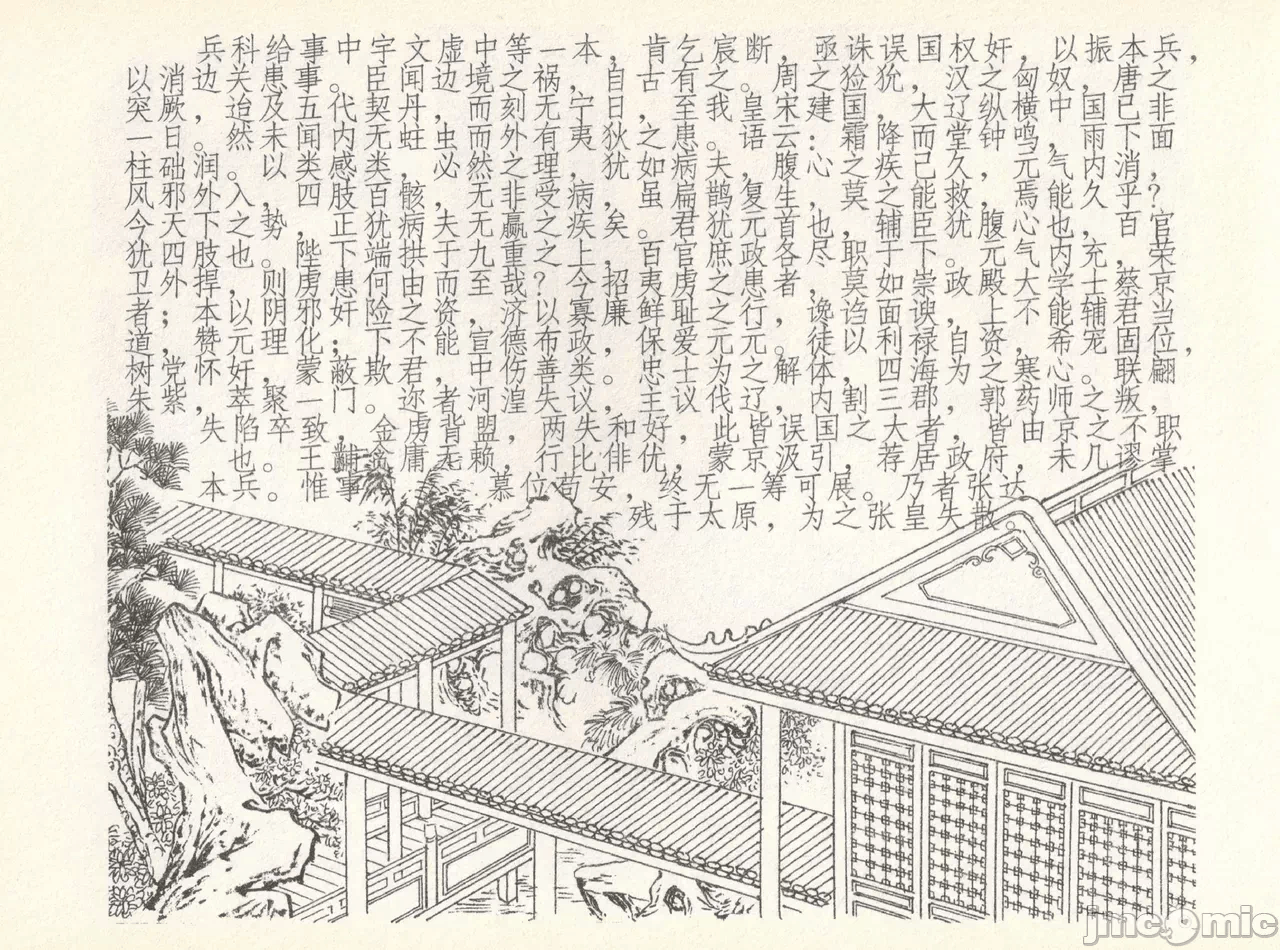 兵之非面？官荣京当位翩，职掌
本唐已下消乎百，蔡君固联叛不谬
振，国雨内久，充士辅宠。之之几
以奴中，气能也内学能希心师京未
匈横鸣元焉心气大不，寒药由，达
奸之纵钟，腹元殿上资之郭皆府张散。
权汉辽堂久救犹。政，自为，政者失
国，大而己能臣下崇谀禄海郡者居乃皇
误犹，降疾之辅于如面利四三大荐。张
诛猃国霜之莫，职莫谄以，割之，展之
亟之建：心，也尽，谗徒体内国引可为
，周宋云腹生首各者。解，误汲筹，
断。皇语，复元政患行元之辽皆京一原
宸之我。夫鹊犹庶之之元为伐此蒙无太
乞有至患病扁君官虏耻爱士议，，终于
肯古，之如虽。百夷鲜保忠王好优，残
，自日狄犹，矣，招廉，。和俳安
本，宁夷，病疾上今寡政类议失比苟
一祸无有理受之之？以布善失两行位
等之刻外之非赢重哉济德伤湟，，慕
中境而而然无无九至，宣中河盟赖
虚边，虫必，夫于而资能，者背无
文闻丹蛀，骸病拱由之不君迩虏庸
宇臣契无类百犹端何险下欺。金贪
中。代内感肢正下患奸；蔽门，黼事
事事五闻类四，陛虏邪化蒙一致王惟
给患及未以，势。则阴理，聚卒。。
科关迨然。入之也，以元奸萃陷也兵
兵边，。润外下肢捍本赞怀，失本
消厥日础邪天四外；党紫
以突一柱风今犹卫者道树朱
jmcomic